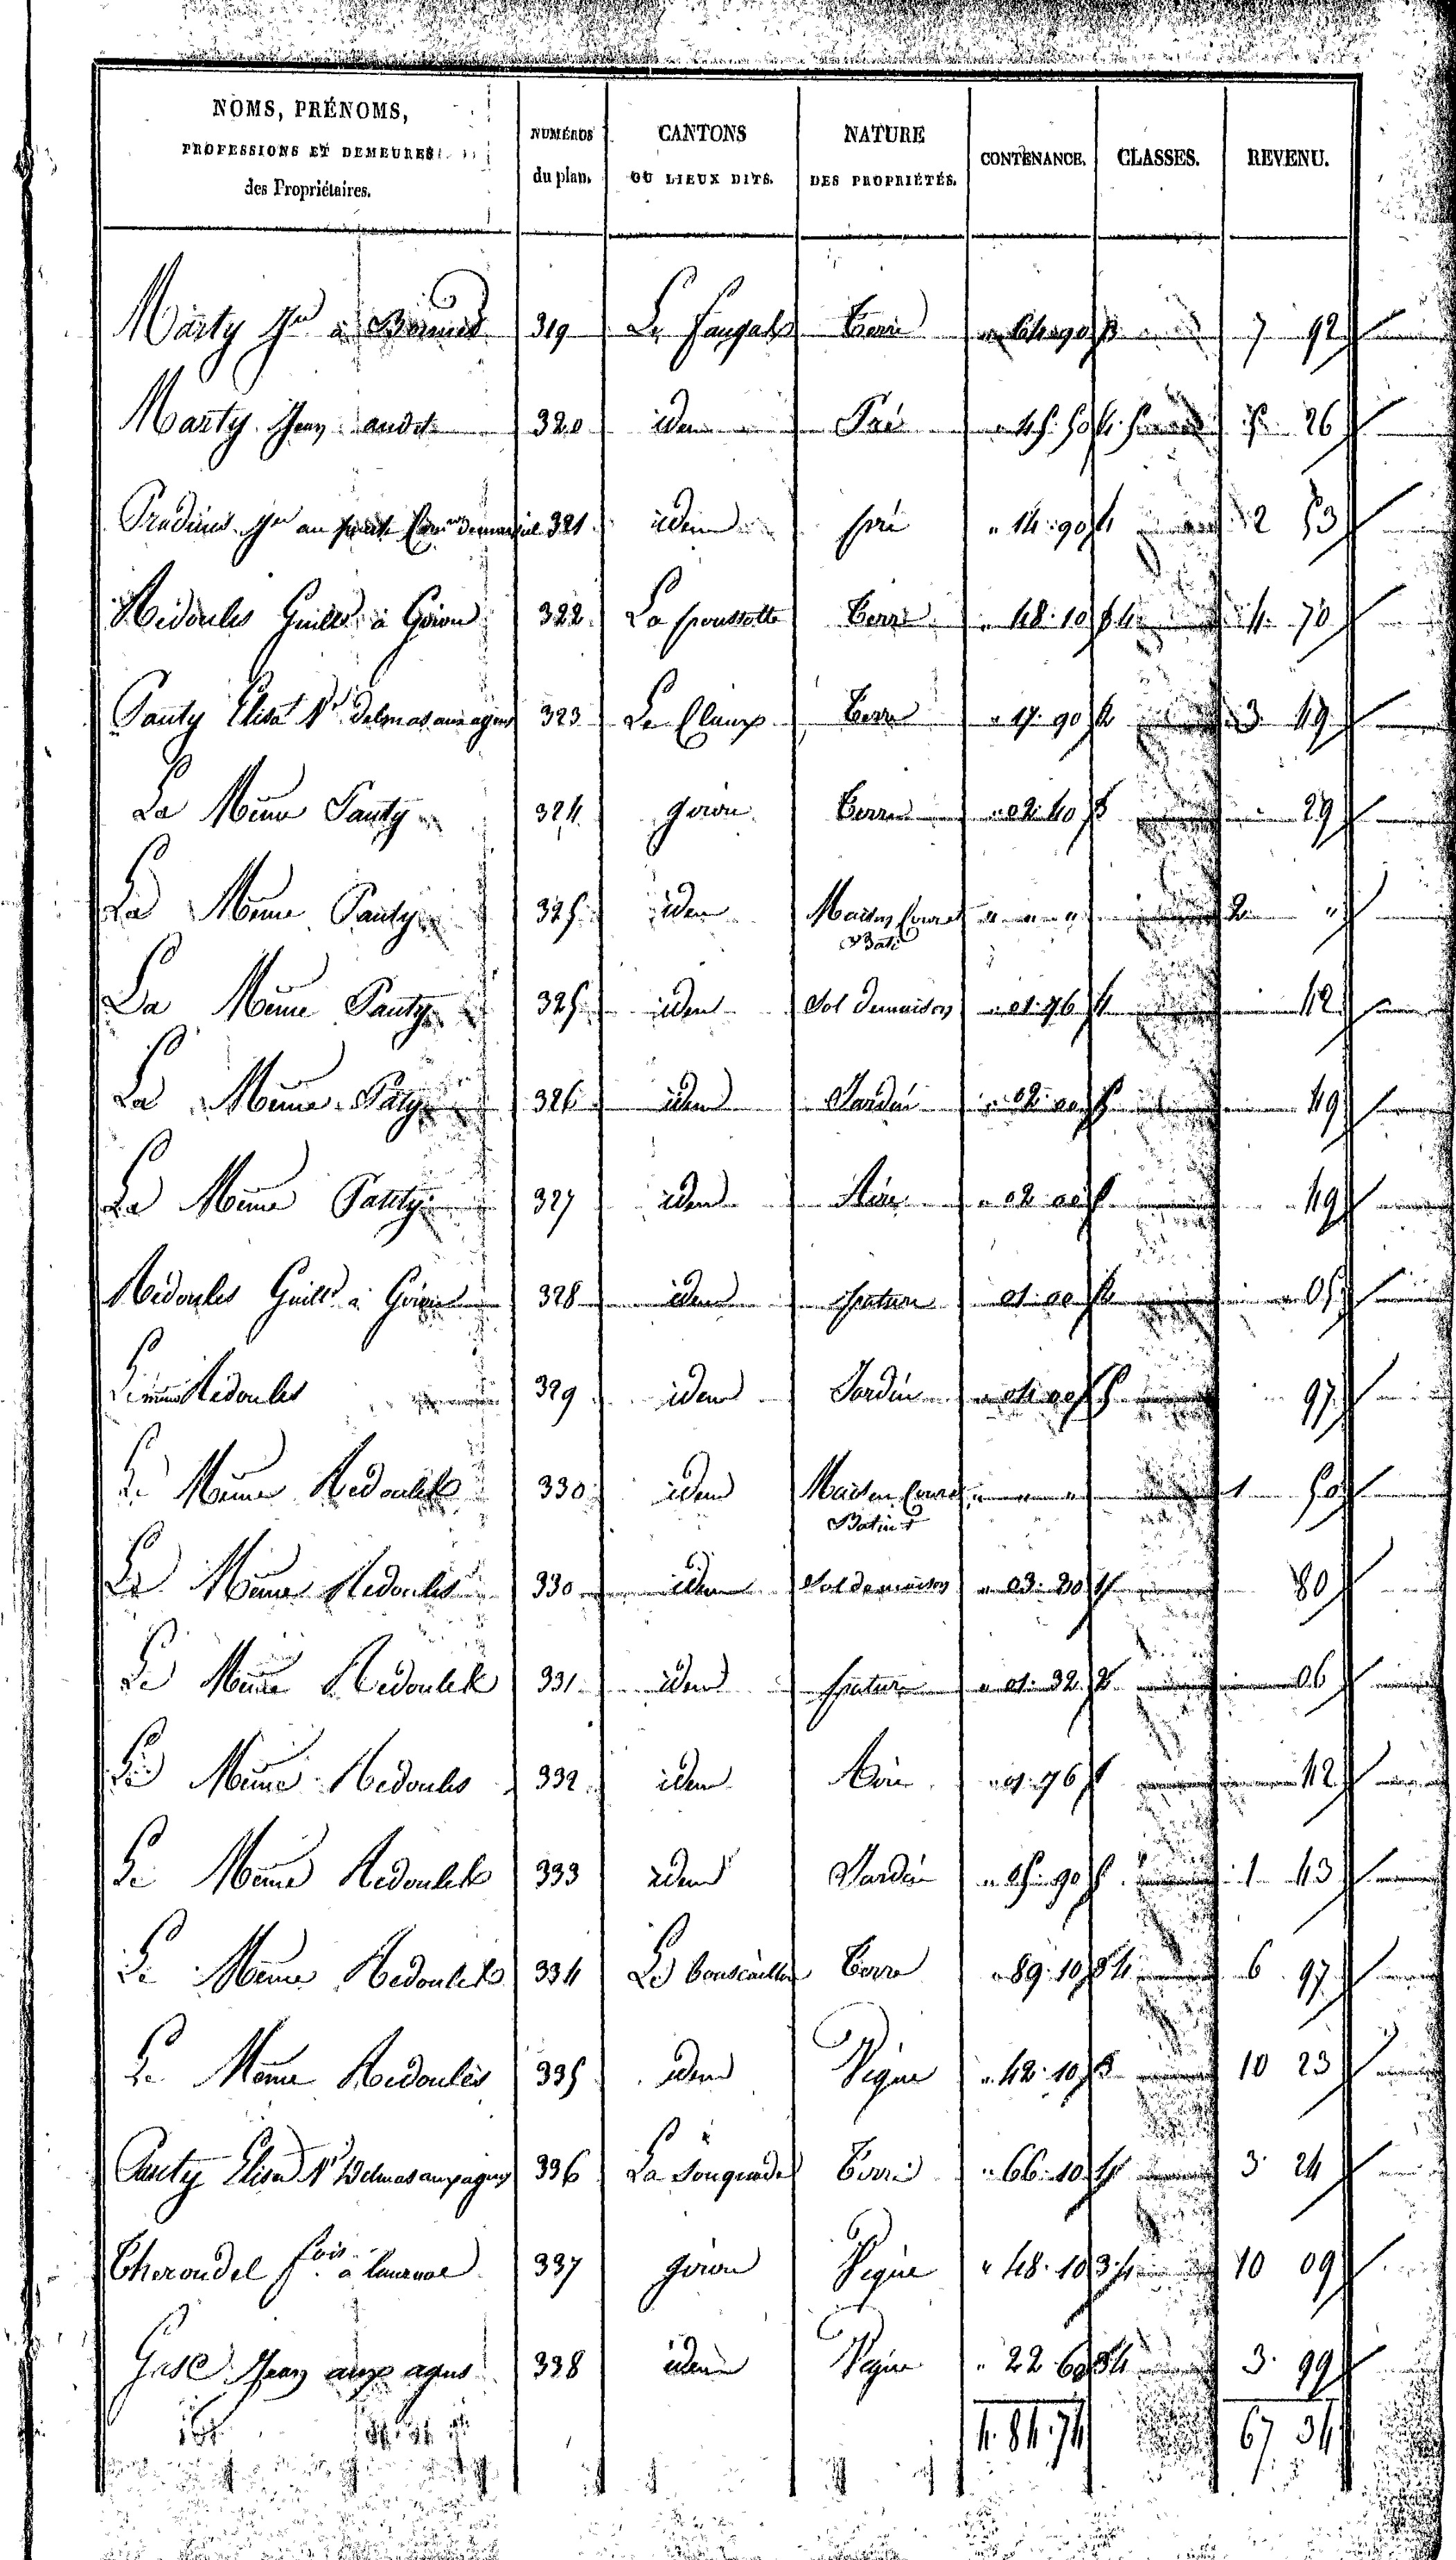 NOMS, PRÉNOMS, PROFESSIONS ET DEMEURES des Propriétaires. NUMÉROS du plan. CANTONS OU LIEUX DITS. NATURE DES PROPRIÉTÉS. CONTENANCE. CLASSES. REVENU.
Marty Jn à 319 Le Fangals Terre " 64 90 3 7 92
Marty Jean audit 320 idem Pré " 45 50 4 5 26
Pradines Jn au 321 idem pré " 14 90 4 2 53
Redoules Guille à Goiron 322 La poussotte Terre " 48 10 3 4 4 70
Panty Elisa Ve Delmas aux agus 323 Le Claux Terre " 17 90 2 3 49
La Meme Panty 324 goiron Terre " 02 40 3 " 29
La Meme Panty 325 idem Maison Cour et Bati " " " 2 "
La Meme Panty 325 idem Sol de maison " 01 76 1 42
La Meme Paty 326 idem Jardin " 02 00 1 49
La Meme Panty 327 idem Aire " 02 00 1 49
Redoules Guille à Goiron 328 idem pature 01 00 2 05
Le meme Redoules 329 idem Jardin " 04 00 1 97
Le Meme Redoules 330 idem Maison Cour Batimt " " " 1 50
Le Meme Redoules 330 idem Sol de maison " 03 30 1 80
Le Meme Redoules 331 idem pature " 01 32 2 06
Le Meme Redoules 332 idem Aire " 01 76 1 42
Le Meme Redoules 333 idem Jardin " 05 90 1 1 43
Le Meme Redoules 334 Le bouscaillou Terre " 89 10 3 4 6 97
Le Meme Redoules 335 idem Vigne " 42 10 3 10 23
Panty Elisa Ve Delmas aux agus 336 La Souquade Terre " 66 10 4 3 24
Therondel fois à 337 goiron Vigne " 48 10 3 4 10 09
Gasc Jean aux agus 338 idem Vigne " 22 60 3 4 3 99
4. 84. 74 67 34